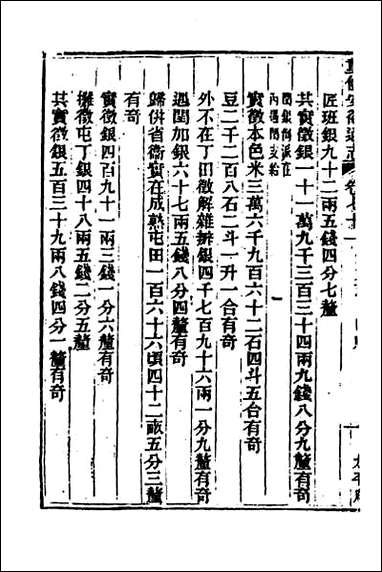 重修安徽通志 卷七十
匠班銀九十二兩五錢四分七釐
其實徵銀一十一萬九千三百三十四兩九錢八分九釐有奇
閏銀衛派在
內遇閏支給
實徵本色米三萬六千九百六十二石四斗五合有奇
豆二千二百八石二斗一升一合有奇
外不在丁田徵解雜辦銀四千七百九十六兩一分九釐有奇
遇閏加銀六十七兩五錢八分四釐有奇
歸併省衛實在成熟屯田一百六十六頃四十二畝五分三釐
有奇
實徵銀四百九十一兩三錢一分六釐有奇
攤徵屯丁銀四十八兩五錢二分五釐
其實徵銀五百三十九兩八錢四分一釐有奇